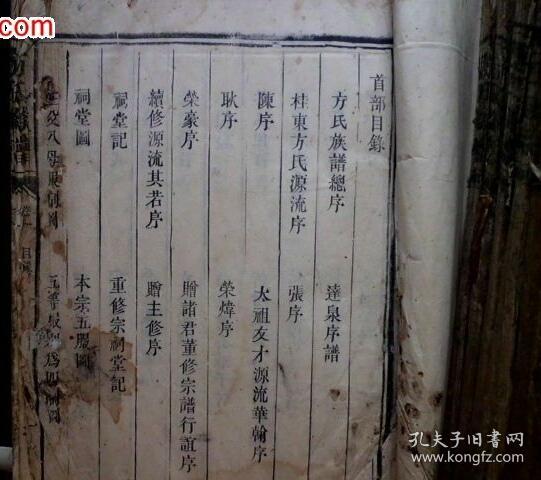 com
首部目錄
方氏族譜總序
達泉序譜
桂東方氏源流序
張序
陳序
太祖友才源流華翰序
耿序
榮煒序
榮豪序
贈諸君董修宗譜行誼序
續修源流其若序
贈主修序
祠堂記
重修宗祠堂記
祠堂圖
本宗五服圖
父八母服制圖
五等
為
圖
目錄
孔夫子旧書网
www.kongfz.com